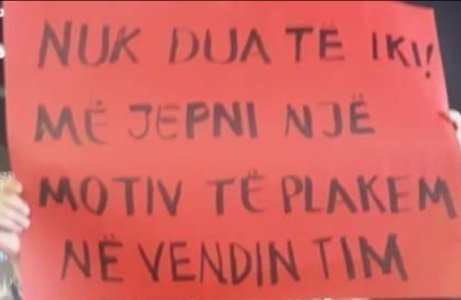 NUK DUA TË IKI!
MË JEPNI NJË
MOTIV TË PLAKEM
NË VENDIN TIM